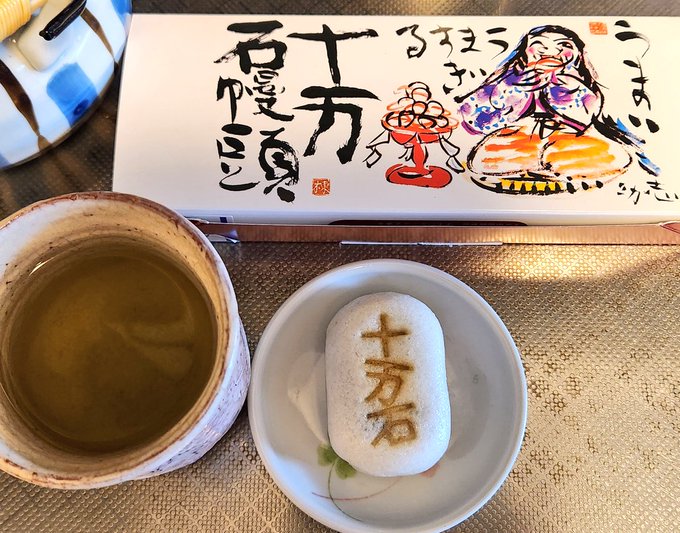 うまい
うますぎる
志功
十万
石幔頭
十万石